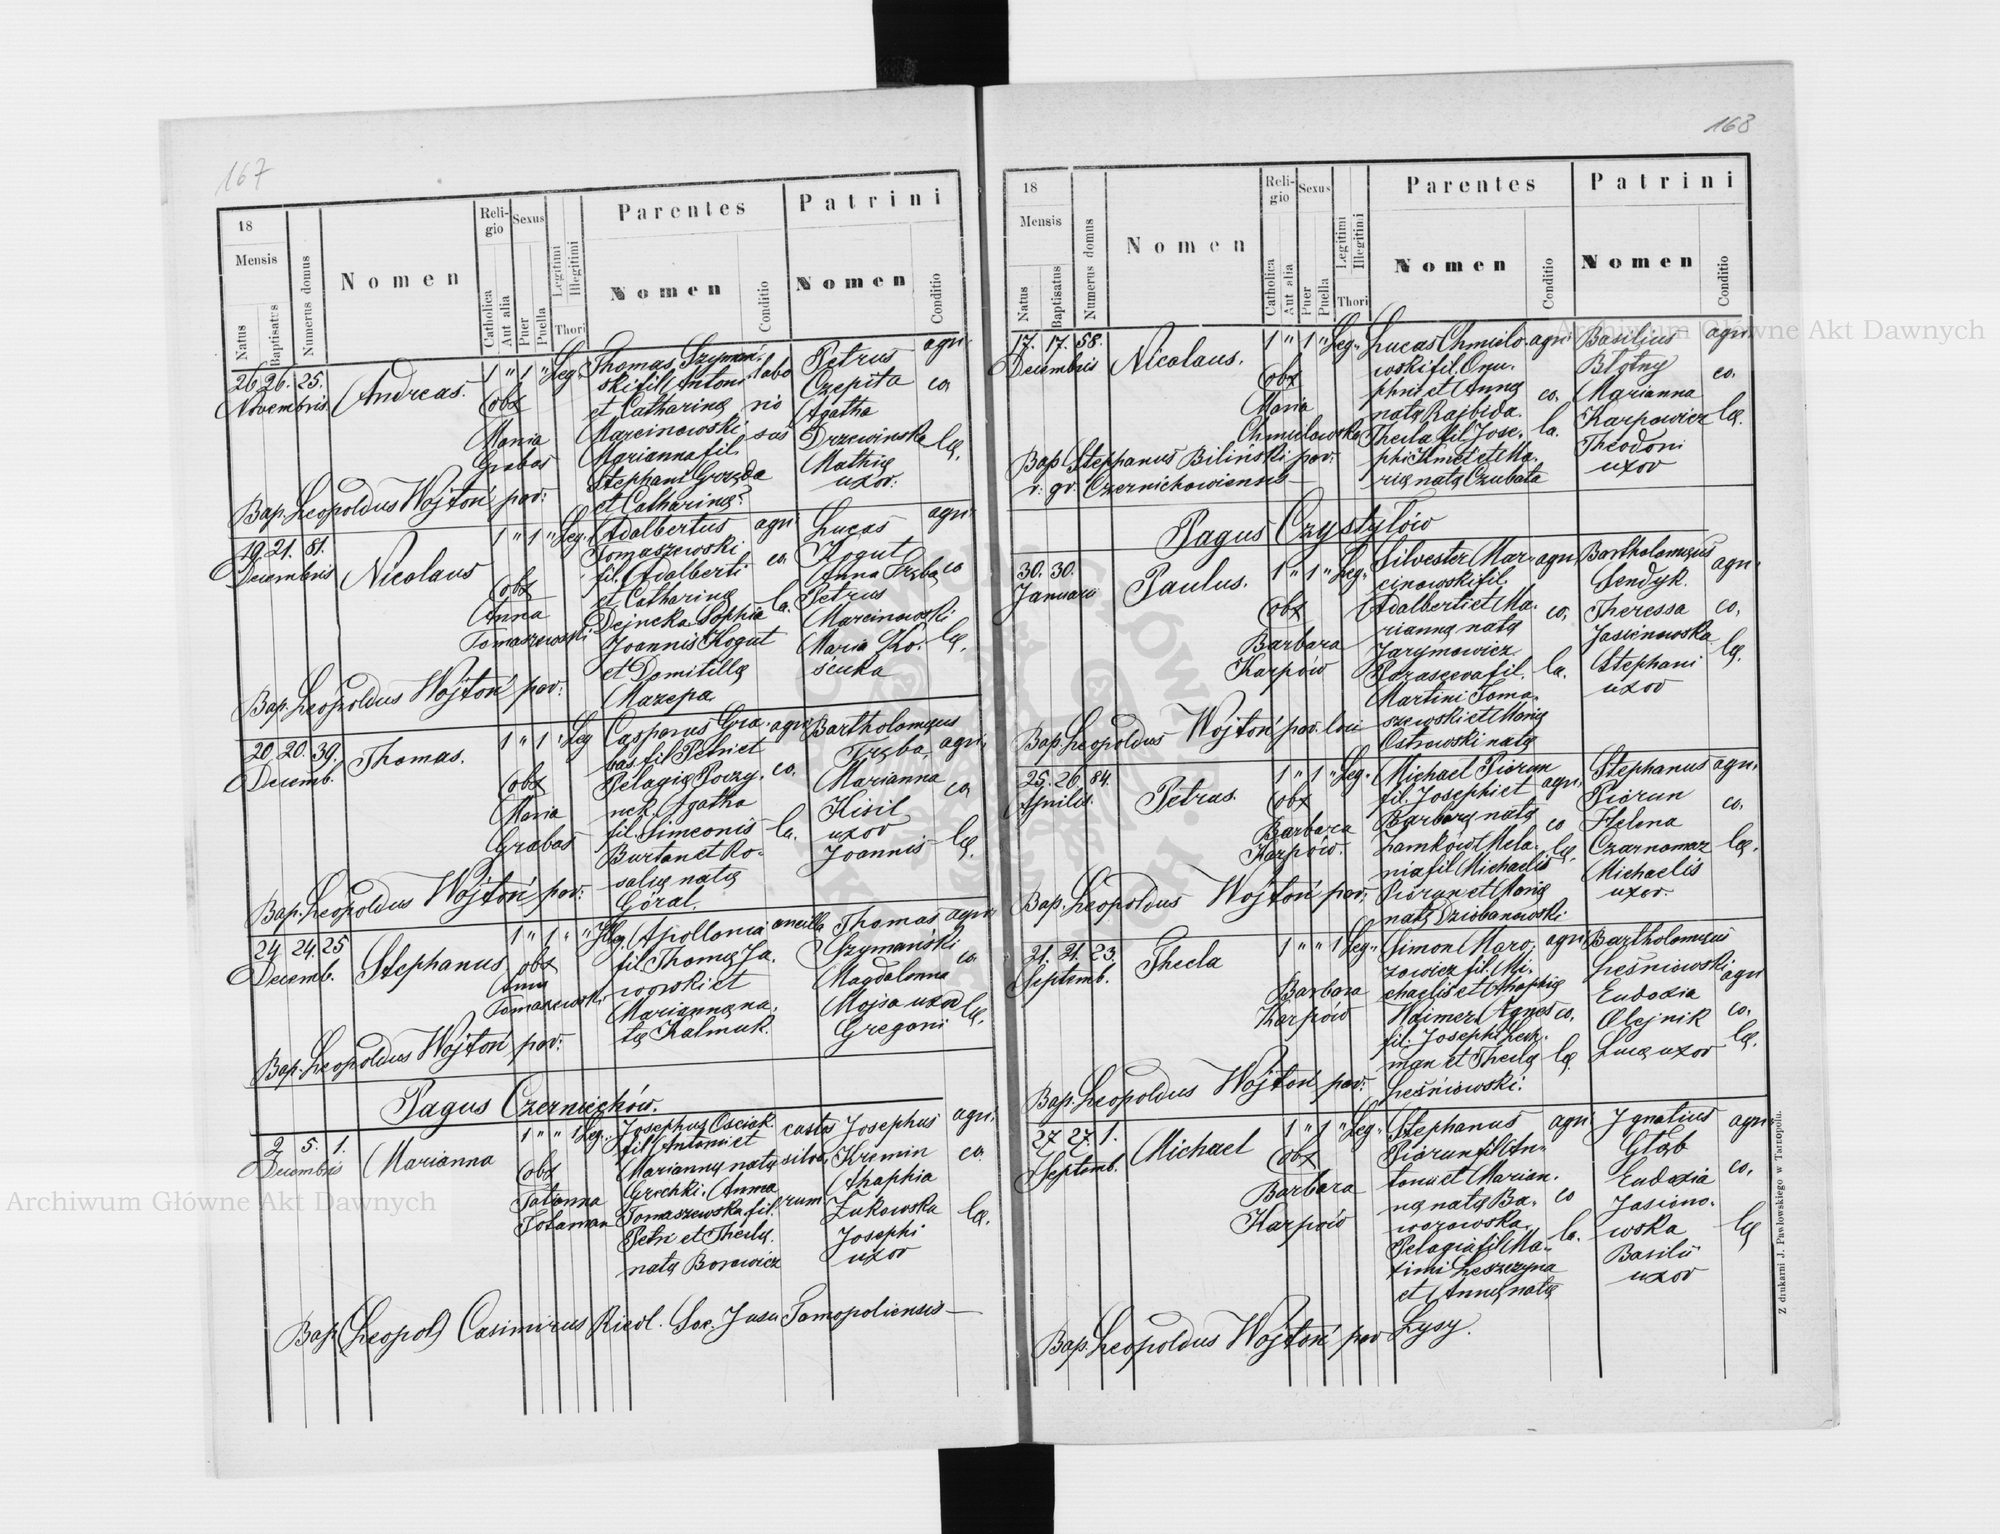 167
18
Mensis
Natus
Baptisatus
Numerus domus
Nomen
Religio
Catholica
Aut alia
Sexus
Puer
Puella
Legitimi
Illegitimi
Thori
Parentes
Nomen
Conditio
Patrini
Nomen
Conditio
26 26. 25.
Novembris
Andreas.
1 " 1 " Leg.
obst
Maria
Grabas
Thomas Szymań-
ski fil. Antoni
et Catharinę
Marcinowski
Marianna fil.
Stephani Grzęda
et Catharinę?
labo
rio
sus
Petrus
Czepita
Agatha
Drzewinska
Mathię
uxor.
agri
co
lę.
Bap. Leopoldus Wojtoń par:
19. 21. 81.
Decembris
Nicolaus
1 " 1 " Leg.
obst
Anna
Tomaszewski
Adalbertus
Tomaszewski
fil. Adalberti
et Catharinę
Dejneka Sophia
Joannis Kogut
et Domitillę
Mazepa
agri
co.
la.
Lucas
Kogut
Anna Tręba
Petrus
Marcinowski
Maria Ko-
sciuka
agri
co
lę.
Bap. Leopoldus Wojtoń par:
20. 20. 39.
Decemb.
Thomas.
1 " 1 " Leg
obst
Maria
Grabas
Casparus Gra-
bas fil. Petri et
Pelagię Poczy-
nek. Agatha
fil. Simeonis
Burtan et Ro-
salię natę
Góral.
agri
co.
la.
Bartholomęus
Tręba
Marianna
Kisil
uxor
Joannis
agri.
co.
lę.
Bap. Leopoldus Wojtoń par:
24 24. 25
Decemb.
Stephanus
1 " 1 " "
obst
Anna
Tomaszewski
Apollonia
fil. Thomę Ja-
worski et
Mariannę na-
tę Kalmuk.
ancilla
Thomas
Szymański
Magdalenna
Mojsa uxor
Gregorii
agri
co.
lę.
Bap. Leopoldus Wojtoń par:
Pagus Czerniechów.
2 5. 1.
Decembris
Marianna
1 " " 1 Leg.
obst
Tatanna
Totaman
Josephus Osciak
fil. Antoni et
Mariannę natę
Grechki. Anna
Tomaszewska fil.
Petri et Theclę
natę Borowicz
custos
silva
rum
Josephus
Kremin
Ahaphia
Żukowska
Josephi
uxor
agri
co.
lę.
Bap. Leopol Casimirus Riedl. Soc. Jesu Tarnopoliensis
168
18
Mensis
Natus
Baptisatus
Numerus domus
Nomen
Religio
Catholica
Aut alia
Sexus
Puer
Puella
Legitimi
Illegitimi
Thori
Parentes
Nomen
Conditio
Patrini
Nomen
Conditio
17. 17. 58.
Decembris
Nicolaus.
1 " 1 " Leg.
obst
Maria
Chmielowska
Lucas Chmielo-
wski fil. Onu-
phrii et Annę
natę Rajbida.
Thecla fil. Jose-
phi Kmet et Ma-
rię natę Czubata
agri
co.
la.
Basilius
Błotny
Marianna
Karpowicz
Theodori
uxor
agri
co.
lę.
Bap. Stephanus Biliński par:
r. gr. Czernichowiensis
Pagus Czystyłów
30. 30.
Januarii
Paulus.
1 " 1 " Leg.
obst
Barbara
Karpów
Silvester Mar-
cinowski fil.
Adalberti et Ma-
riannę natę
Jarymowicz
Parasceva fil.
Martini Toma-
szewski et Marię
Ostrowski natę
agri
co.
la.
Bartholomęus
Sendyk.
Theressa
Jasinowska
Stephani
uxor
agri
co,
lę.
Bap. Leopoldus Wojtoń par. loci
25. 26. 84.
Aprilis.
Petrus.
1 " 1 " Leg.
obst
Barbara
Karpów.
Michael Piórun
fil. Josephi et
Barbarę natę
Zamków Mela-
nia fil Michaelis
Piórun et Marię
natę Dziobanowski
agri
co
lę.
Stephanus
Piórun
Helena
Czarnomaz
Michaelis
uxor.
agri
co.
lę.
Bap. Leopoldus Wojtoń par.
21. 21. 23.
Septemb.
Thecla
1 " " 1 Leg.
Barbara
Karpów
Simon Maro-
zowicz fil. Mi-
chaelis et Ahaphię
Waimer. Agnes
fil. Josephi Lesz-
man et Theclę
Leśniowski.
agri
co.
lę
Bartholomęus
Leśniowski
Eudoxia
Olejnik
Lucę uxor
agri
co.
lę.
Bap. Leopoldus Wojtoń par.
27. 27. 1.
Septemb.
Michael
1 " 1 " Leg.
obst
Barbara
Karpów
Stephanus
Piórun fil An-
toni et Marian-
nę natę Ba-
worowska.
Pelagia fil Ma-
ximi Leszczyna
et Annę natę
Łysy.
agri
co
la.
Ignatius
Głąb
Eudoxia
Jasino-
wska
Basilii
uxor
agri
co.
lę
Bap. Leopoldus Wojtoń par
Z drukarni J. Pawłowskiego w Tarnopolu.
Archiwum Główne Akt Dawnych
Archiwum Główne Akt Dawnych